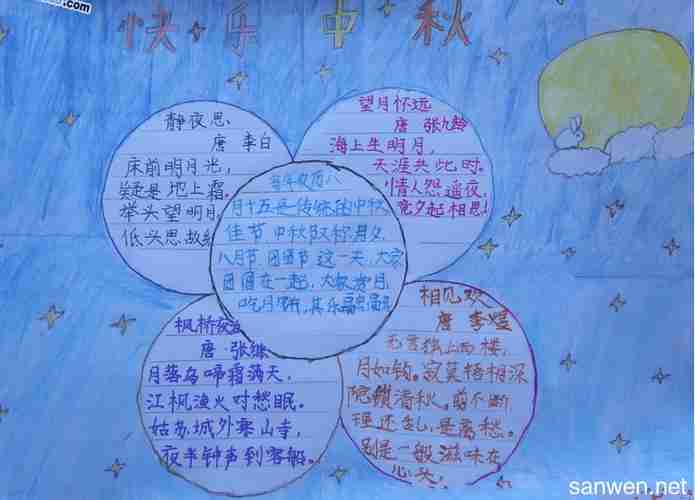 .com
快乐中秋
静夜思
唐 李白
床前明月光,
疑是地上霜。
举头望明月,
低头思故
望月怀远
唐 张九龄
海上生明月,
天涯共此时。
情人怨遥夜,
竟夕起相思!
月十五是传统的中秋
佳节,中秋又称月夕,
八月节,团圆节这一天,大家
团圆在一起,大家赏月,
吃月饼,其乐
枫桥夜泊
唐·张继
月落乌啼霜满天,
江枫渔火对愁眠。
姑苏城外寒山寺,
夜半钟声到客船。
相见欢
唐 李煜
无言独上西楼,
月如钩。寂寞梧桐深
院锁清秋。剪不断
理还乱,是离愁。
别是一般滋味在
心头,
sanwen.net